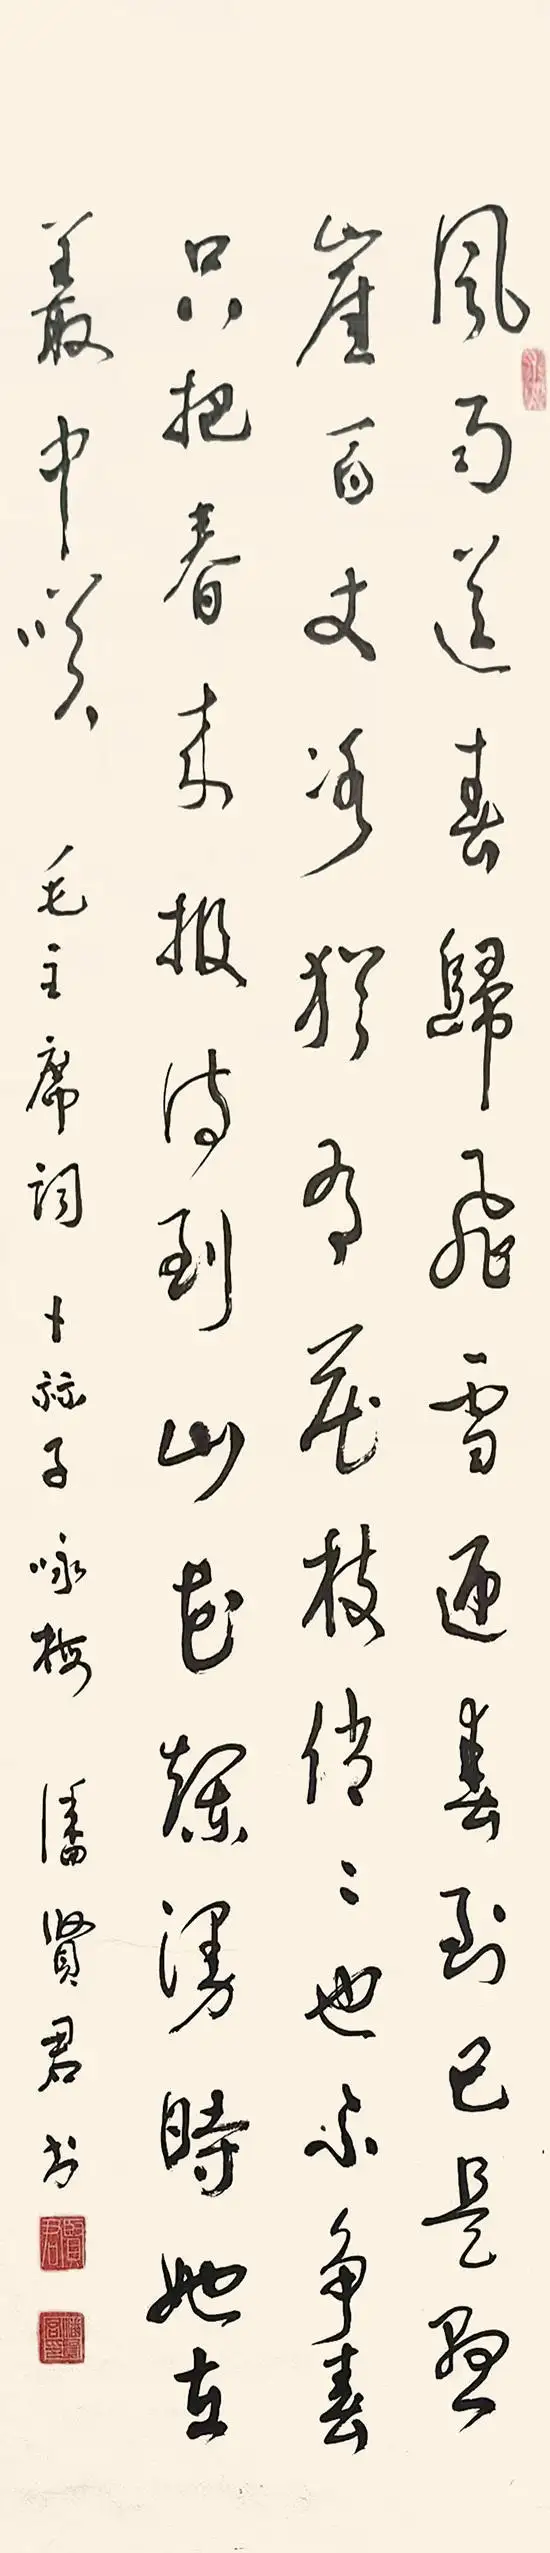 風雨送春歸飛雪迎春到已是懸
崖百丈冰猶有花枝俏〻也不争春
只把春来报待到山花爛漫時她在
叢中咲 毛主席詞 卜祘子 咏梅 潘賢君书
賢君